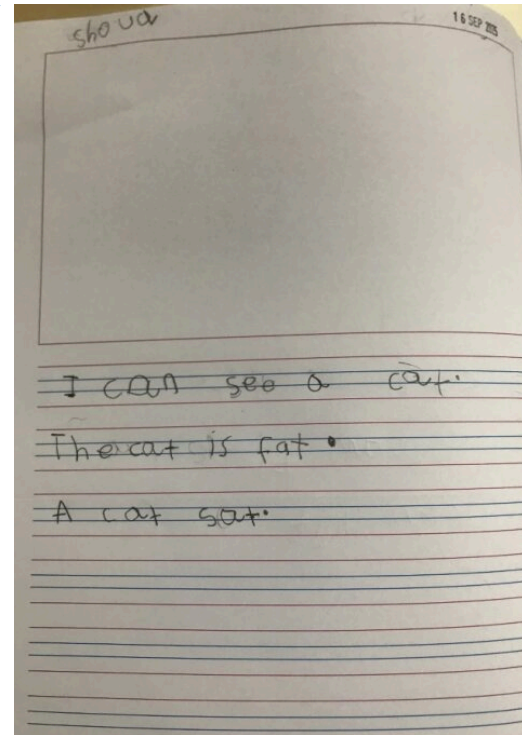 shova
16 SEP 2025
I can see a cat.
The cat is fat.
A cat sat.